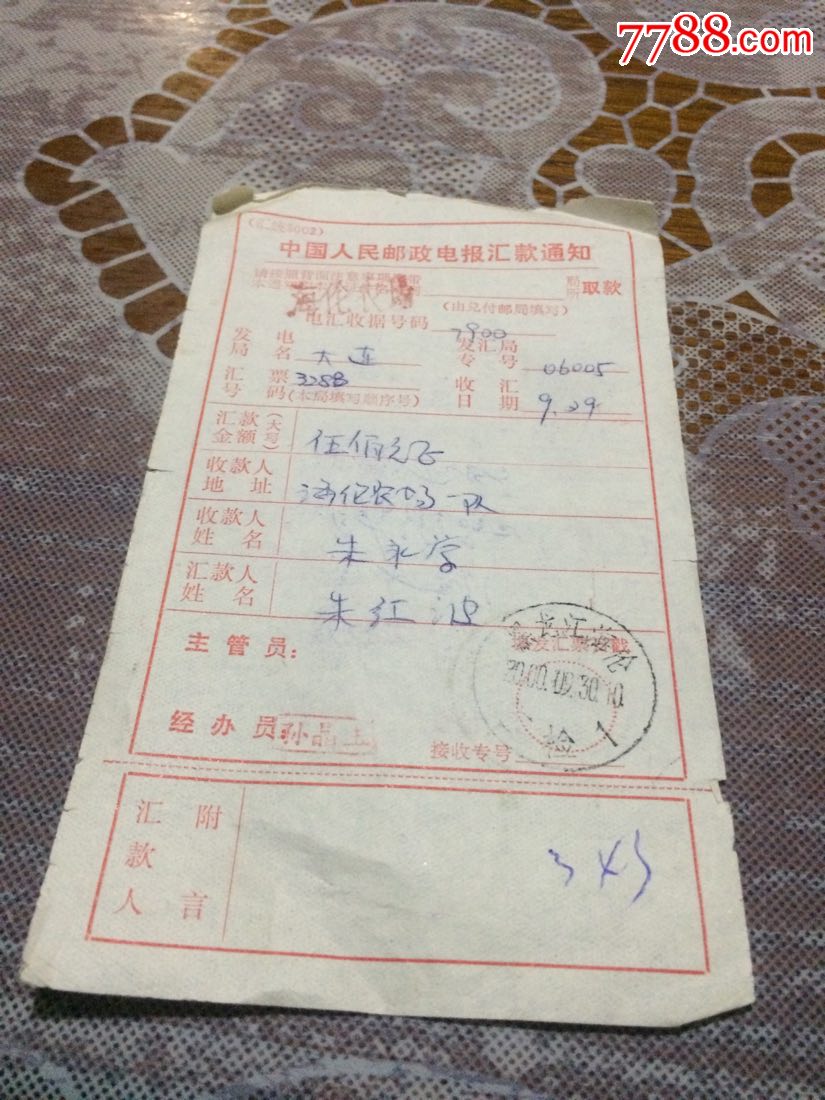 7788.com
中国人民邮政电报汇款通知
取款
(由兑付邮局填写)
电汇收据号码 7900
发电局名 大连 发汇局专号 06005
汇票号码 3288 (本局填写顺序号) 收汇日期 9.29
汇款金额(大写) 伍佰元正
收款人地址 海伦农场一队
收款人姓名 朱永学
汇款人姓名 朱红波
主管员:
经办员: 孙晶玉
接收专号
检 1
汇款人附言